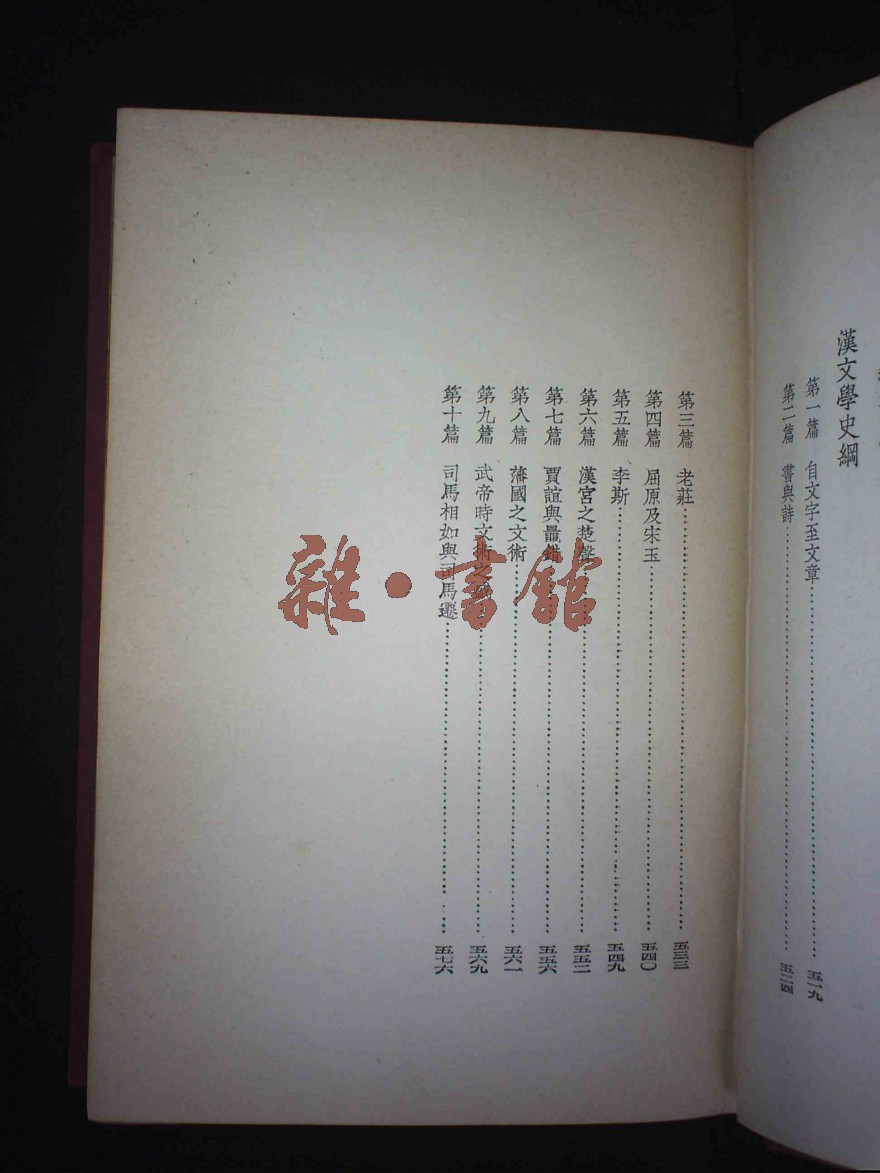 漢文學史綱
第一篇 自文字至文章……五一九
第二篇 書與詩……五二四
第三篇 老莊……五三三
第四篇 屈原及宋玉……五四〇
第五篇 李斯……五四九
第六篇 漢宮之楚聲……五五二
第七篇 賈誼與鼂錯……五五六
第八篇 藩國之文術……五六一
第九篇 武帝時文術之……五六九
第十篇 司馬相如與司馬遷……五七六
雜·書館